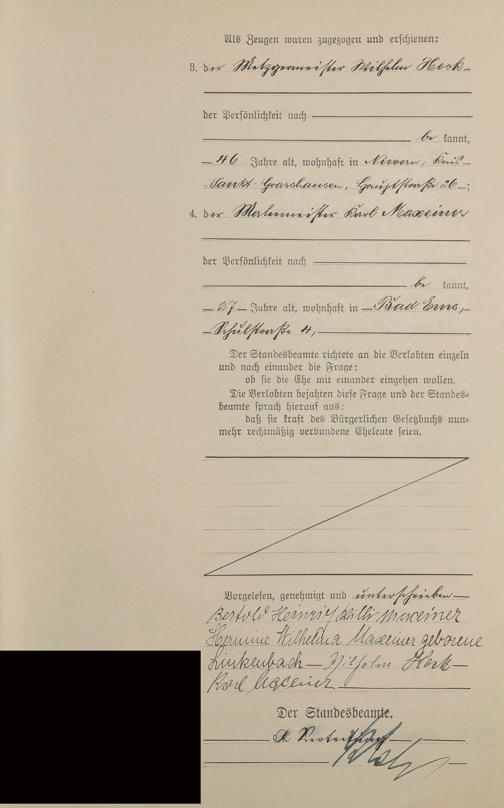 Als Zeugen waren zugezogen und erschienen:
3. der Metzgermeister Wilhelm Heck
der Persönlichkeit nach
be kannt,
46 Jahre alt, wohnhaft in Nievern, Kreis
Sankt Goarshausen, Hauptstraße 26;
4. der Malermeister Karl Maxeiner
der Persönlichkeit nach
be kannt,
27 Jahre alt, wohnhaft in Bad Ems,
Schulstraße 4,
Der Standesbeamte richtete an die Verlobten einzeln
und nach einander die Frage:
ob sie die Ehe mit einander eingehen wollen.
Die Verlobten bejahten diese Frage und der Standes-
beamte sprach hierauf aus:
daß sie kraft des Bürgerlichen Gesetzbuchs nun-
mehr rechtmäßig verbundene Eheleute seien.
Vorgelesen, genehmigt und unterschrieben
Bertold Heinrich Willi Maxeiner
Hermine Wilhelma Maxeiner geborene
Linkenbach - Wilhelm Heck
Karl Maxeiner
Der Standesbeamte.
In Vertretung